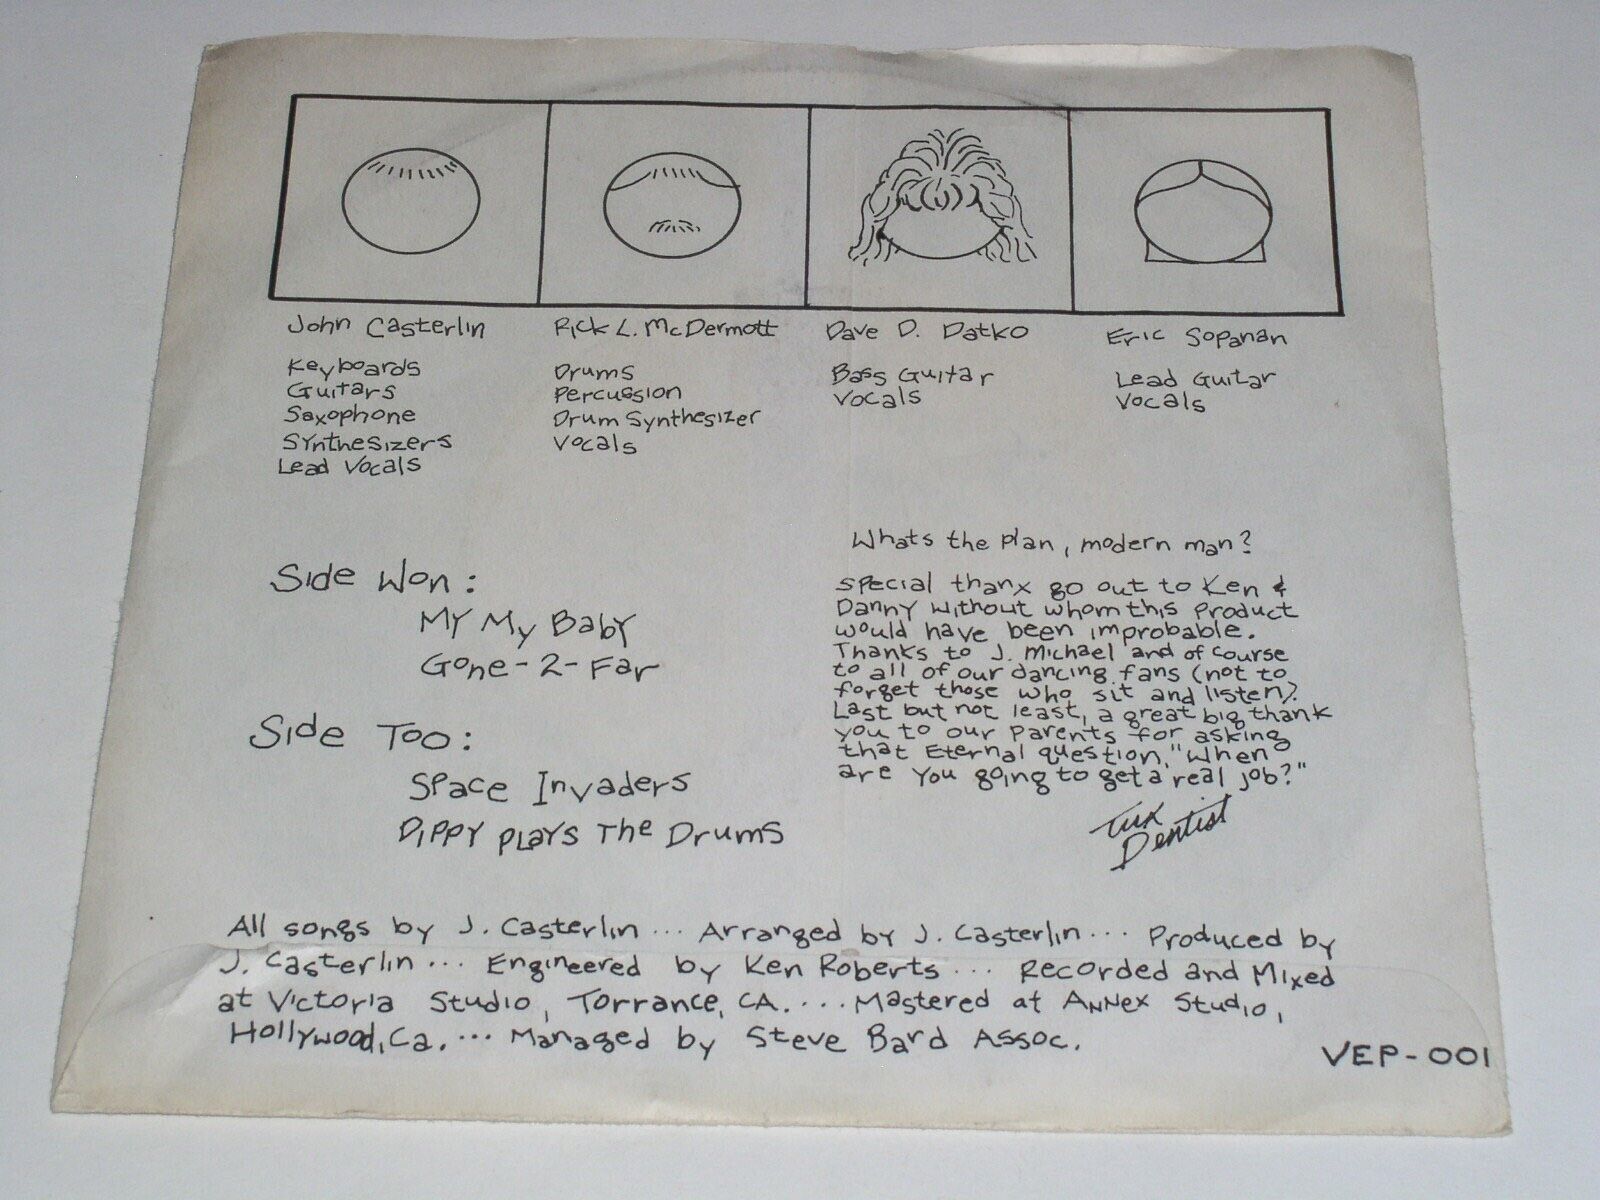 John Casterlin
Keyboards
Guitars
Saxophone
Synthesizers
Lead Vocals
Rick L. McDermott
Drums
Percussion
Drum Synthesizer
Vocals
Dave D. Datko
Bass Guitar
Vocals
Eric Sopanan
Lead Guitar
Vocals
Side Won:
My My Baby
Gone-2-Far
Side Too:
Space Invaders
Dippy Plays The Drums
Whats the plan, modern man?
Special thanx go out to Ken &
Danny without whom this product
would have been improbable.
Thanks to J. Michael and of course
to all of our dancing fans (not to
forget those who sit and listen).
Last but not least, a great big thank
you to our parents for asking
that Eternal question, "When
are you going to get a real job?"
Tux
Dentist
All songs by J. Casterlin ... Arranged by J. Casterlin ... Produced by
J. Casterlin ... Engineered by Ken Roberts ... Recorded and Mixed
at Victoria Studio, Torrance, CA. ... Mastered at Annex Studio,
Hollywood, Ca. ... Managed by Steve Bard Assoc.
VEP-001